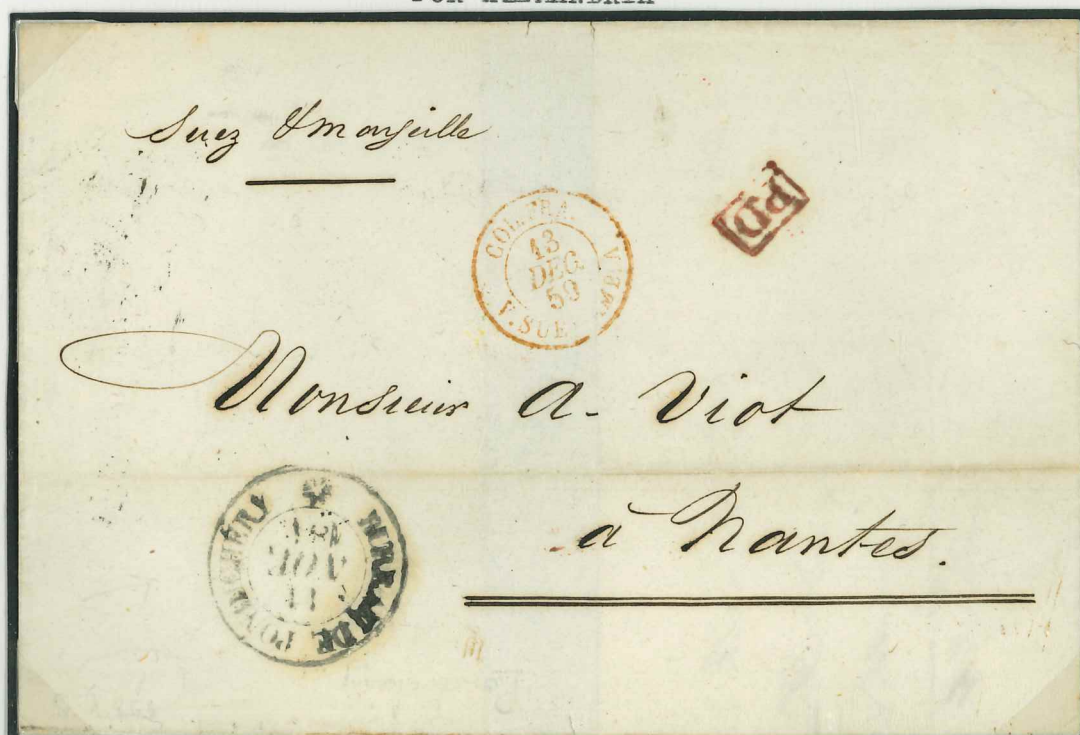 FOR ALEXANDRIA
Suez & Marseille
PD
COL. FRA. V. SUEZ AMB.
13
DEC.
59
Monsieur A. Viot
à Nantes.
BUREAU DE PONDICHÉRY
NOV